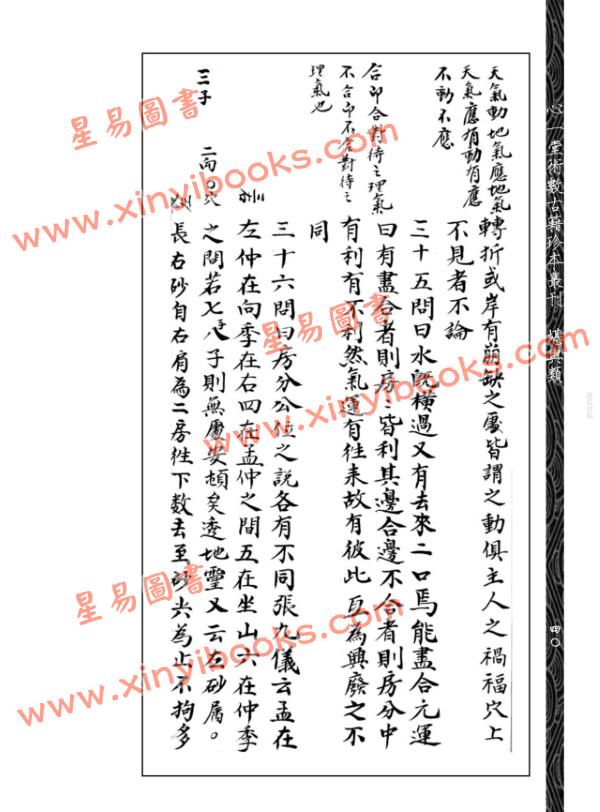 心一堂術數古籍珍本叢刊 堪輿類
四〇
天氣動地氣應地氣
天氣應有動有應
不動不應
轉折或岸有崩缺之處皆謂之動俱主人之禍福穴上
不見者不論
三十五問曰水既橫過又有去來二口焉能盡合元運
合即合對待之理氣
不合即不合對待之
理氣也
曰有盡合者則房〻皆利其邊合邊不合者則房分中
有利有不利然氣運有往來故有彼此互為興廢之不
同
三十六問曰房分公位之說各有不同張九儀云孟在
左仲在向季在右四在孟仲之間五在坐山六在仲季
二向〇穴
之間若七八子則無處安頓矣遼地靈又云左砂屬
三子
長右砂自右肩為二房往下数去至砂尖為止不拘多
星易圖書
www.xinyibooks.com
星易圖書
www.xinyibooks.com
星易圖書
www.xinyibooks.com